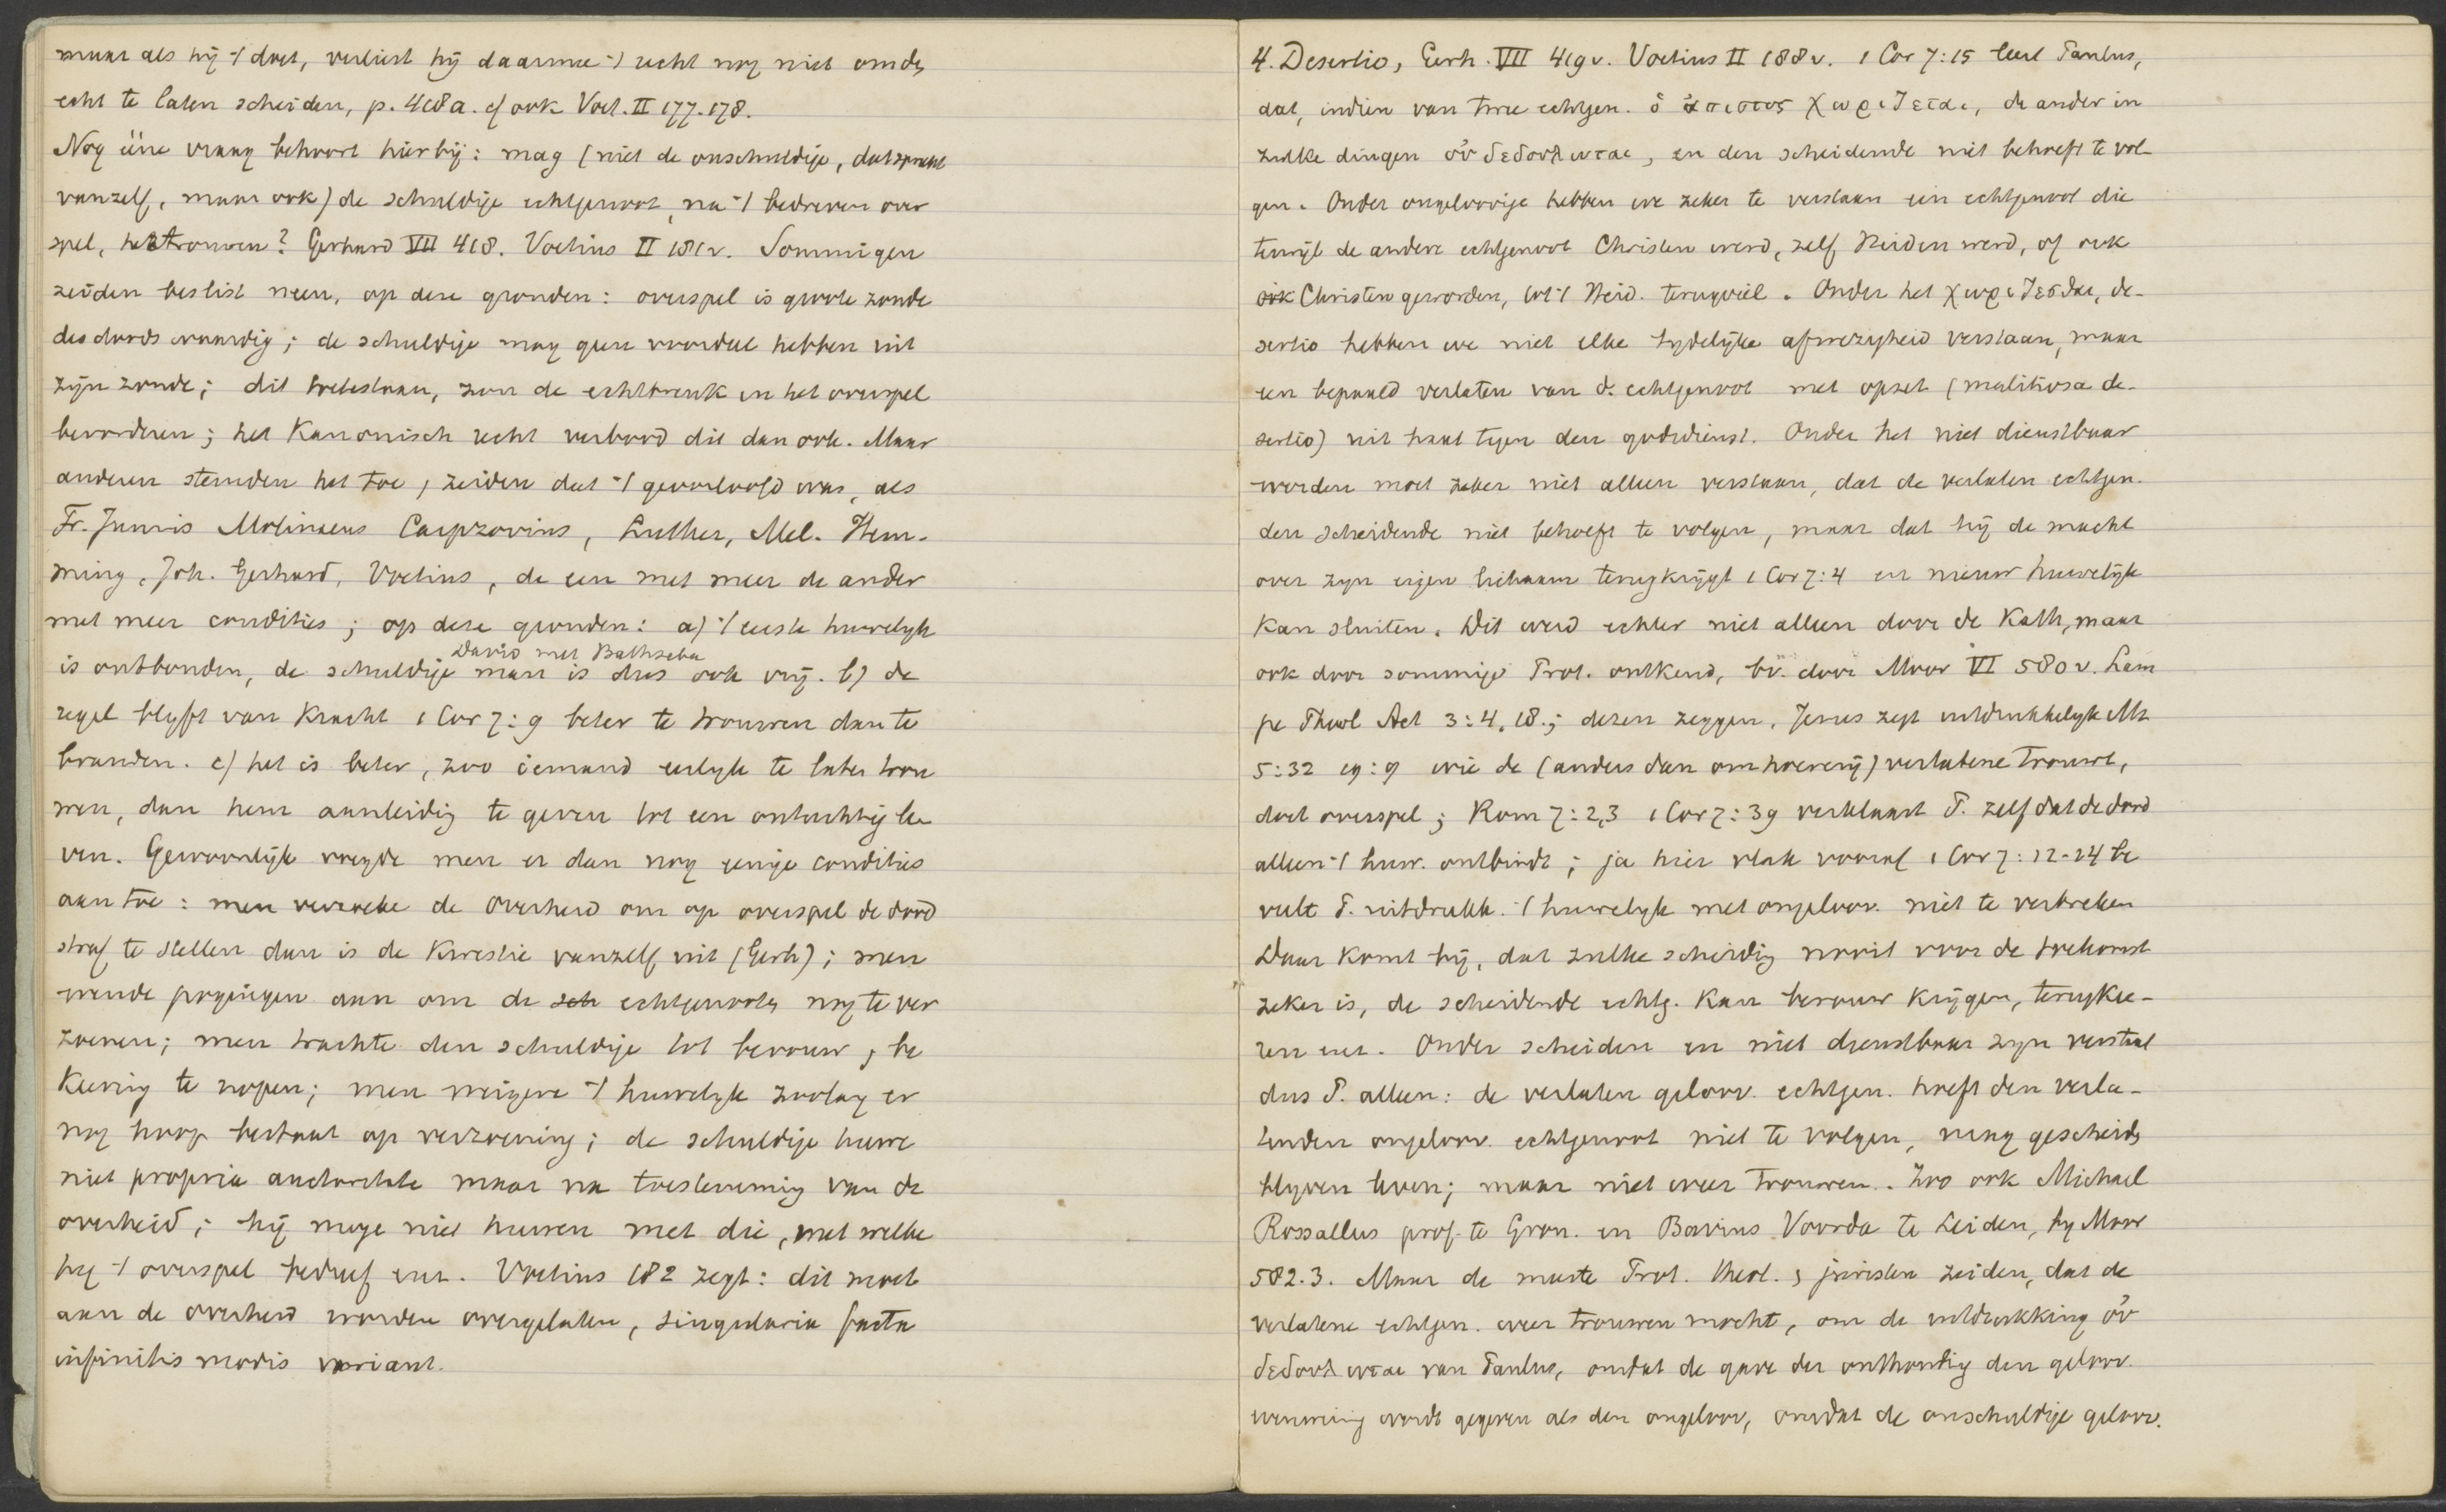 maar als hij 't doet, verliest hij daarmee 't recht nog niet om de
echt te laten scheiden, p. 418a. cf ook Voet. II 177. 178.
Nog ééne vraag behoort hierbij: mag (niet de onschuldige, dat spreekt
vanzelf, maar ook) de schuldige echtgenoot, na 't bedreven over
spel, hertrouwen? Gerhard VII 418. Voetius II 181v. Sommigen
zeiden beslist neen, op deze gronden: overspel is groote zonde
des doods waardig; de schuldige mag geen voordeel hebben uit
zijn zonde; dit toetestaan, zou de echtbreuk en het overspel
bevorderen; het Kanonisch recht verbood dit dan ook. Maar
anderen stemden het toe, zeiden dat 't geoorloofd was, als
Fr. Junius Molinaeus Carpzovius, Luther, Mel. Hem-
ming, Joh. Gerhard, Voetius, de een met meer de ander
met meer condities; op deze gronden: a) 't eerste huwelijk
David met Bathseba
is ontbonden, de schuldige man is dus ook vrij. b) de
regel blijft van kracht 1 Cor 7:9 beter te trouwen dan te
branden. c) het is beter, zoo iemand eerlijk te laten trou
wen, dan hem aanleiding te geven tot een ontuchtig le
ven. Gewoonlijk voegde men er dan nog eenige condities
aan toe: men verzoeke de Overheid om op overspel de dood
straf te stellen dan is de kwestie vanzelf uit (Gerh); men
wende pogingen aan om de sch echtgenooten nog te ver
zoenen; men trachte den schuldige tot berouw, be
keering te nopen; men weigere 't huwelijk zoolang er
nog hoop bestaat op verzoening; de schuldige huwe
niet propria auctoritate maar na toestemming van de
overheid; hij moge niet huwen met die, met welke
hij 't overspel bedreef enz. Voetius 182 zegt: dit moet
aan de overheid worden overgelaten, singularia facta
infinitis modis variant.
4. Desertio, Gerh. VII 419v. Voetius II 188v. 1 Cor 7:15 leert Paulus,
dat, indien van twee echtgen. ὁ ἄπιστος χωριζεται, de ander in
zulke dingen οὐ δεδουλωται, en den scheidende niet behoeft te vol-
gen. Onder ongeloovige hebben we zeker te verstaan een echtgenoot die
terwijl de andere echtgenoot Christen werd, zelf Heiden werd, of ook
ook Christen geworden, tot 't Heid. terugviel. Onder het χωριζεσθαι, de-
sertio hebben we niet elke tijdelijke afwezigheid verstaan, maar
een bepaald verlaten van d. echtgenoot met opzet (malitiosa de-
sertio) uit haat tegen den godsdienst. Onder het niet dienstbaar
worden moet zeker niet alleen verstaan, dat de verlaten echtgen.
den scheidende niet behoeft te volgen, maar dat hij de macht
over zijn eigen lichaam terugkrijgt 1 Cor 7:4 en nieuw huwelijk
kan sluiten. Dit werd echter niet alleen door de Kath, maar
ook door sommige Prot. ontkend, bv. door Moor VI 580v. Lam
pe Theol Act 3:4,18.; dezen zeggen, Jezus zegt uitdrukkelijk Mt
5:32 19:9 wie de (anders dan om hoererij) verlatene trouwt,
doet overspel; Rom 7:2,3 1 Cor 7:39 verklaart P. zelf dat de dood
alleen 't huw. ontbindt; ja hier vlak vooraf 1 Cor 7:12-14 be
veelt P. uitdrukk. 't huwelijk met ongeloov. niet te verbreken
Daar komt bij, dat zulke scheiding nooit voor de toekomst
zeker is, de scheidende echtg. kan berouw krijgen, terugkee-
ren enz. Onder scheiden en niet dienstbaar zijn verstaat
dus P. alleen: de verlaten geloov. echtgen. hoeft den verla-
tenden ongeloov. echtgenoot niet te volgen, mag gescheiden
blijven leven; maar niet weer trouwen. Zoo ook Michael
Rossallus prof. te Gron. en Bavius Voorda te Leiden, bij Moor
582.3. Maar de meeste Prot. theol. & juristen zeiden, dat de
verlatene echtgen. weer trouwen mocht, om de uitdrukking οὐ
δεδουλωται van Paulus, omdat de gave der onthouding den geloov.
evenmin wordt gegeven als den ongeloov, omdat de onschuldige geloov.